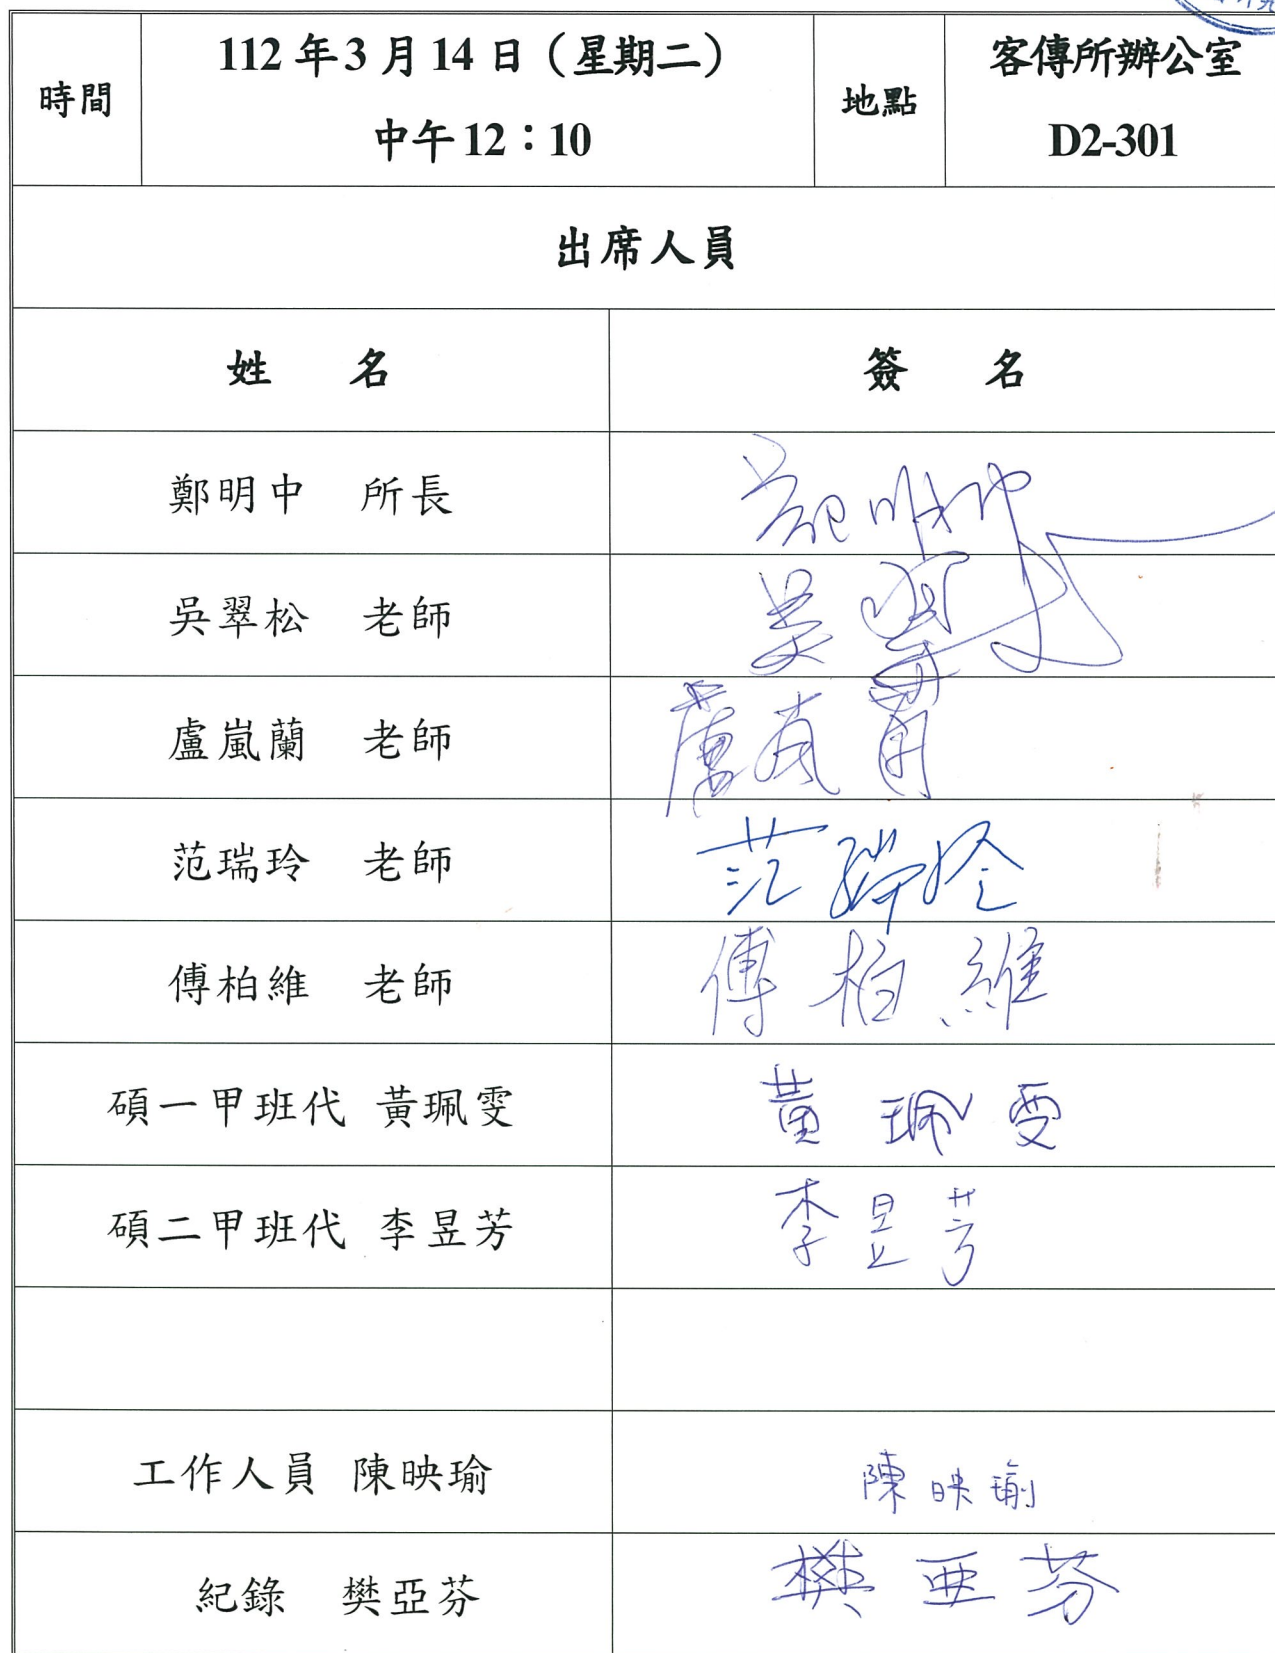 時間
112年3月14日（星期二）
中午12：10
地點
客傳所辦公室
D2-301
出席人員
姓 名
簽 名
鄭明中 所長
吳翠松 老師
吳翠松
盧嵐蘭 老師
盧嵐蘭
范瑞玲 老師
范瑞玲
傅柏維 老師
傅柏維
碩一甲班代 黃珮雯
黃珮雯
碩二甲班代 李昱芳
李昱芳
工作人員 陳映瑜
陳映瑜
紀錄 樊亞芬
樊亞芬